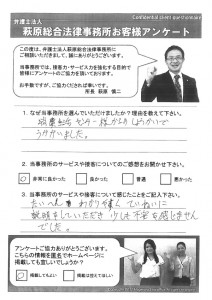 Confidential client questionnaire
弁護士法人
萩原総合法律事務所お客様アンケート
この度は、弁護士法人萩原総合法律事務所に
ご相談いただきまして、誠にありがとうございます。
当事務所では、接客力・サービス力を強化する目的で
皆様にアンケートのご協力を頂いております。
お手数ですが、ご協力くださいませ。
所長 萩原 慎二
1. なぜ当事務所を選んでいただけましたか？理由を教えて下さい。
センター様からのしょうかいで
うかがいました。
2. 当事務所のサービスや接客についてのご感想をお聞かせ下さい。
非常に良かった
良かった
普通
悪かった
3. 当事務所のサービスや接客について感じたことをご記入下さい。
たいへん わかり易く ていねいに
説明をしていただき 少しも不安を感じません
でした。
アンケートご協力ありがとうございます。
こちらの情報を匿名でホームページに
掲載しても宜しいでしょうか？
掲載してもよい
掲載は控えてほしい